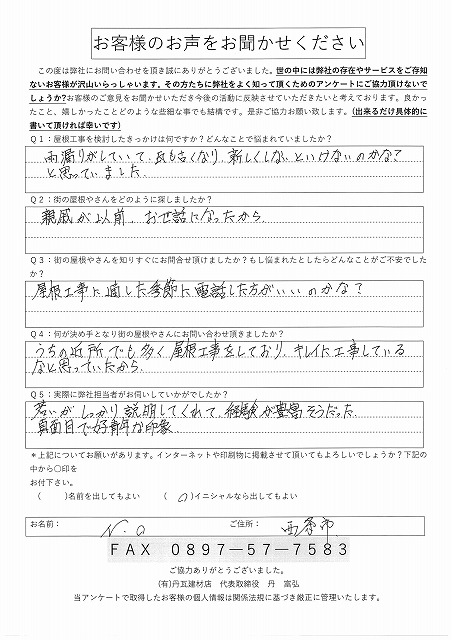 お客様のお声をお聞かせください
この度は弊社にお問い合わせを頂き誠にありがとうございました。世の中には弊社の存在やサービスをご存知
ないお客様が沢山いらっしゃいます。その方たちに弊社をよく知って頂くためのアンケートにご協力頂けないで
しょうか?お客様のご意見をお聞かせいただき今後の活動に反映させていただきたいと考えております。良かっ
たこと、嬉しかったことどのような些細な事でも結構です。是非ご協力お願い致します。(出来るだけ具体的に
書いて頂ければ幸いです)
Q1:屋根工事を検討したきっかけは何ですか?どんなことで悩まれていましたか?
雨漏りがしていて、瓦も古くなり、新しくしないといけないのかな?
と思っていました。
Q2:街の屋根やさんをどのように探しましたか?
親戚が以前、お世話になったから
Q3:街の屋根やさんを知りすぐにお問合せ頂けましたか?もし悩まれたとしたらどんなことがご不安でした
か?
屋根工事に適した季節に電話した方がいいのかな?
Q4:何が決め手となり街の屋根やさんにお問い合わせ頂きましたか?
うちの近所でも多く屋根工事をしており、キレイに工事している
なと思っていたから。
Q5:実際に弊社担当者がお伺いしていかがでしたか?
若いがしっかり説明してくれて、経験が豊富そうだった。
真面目で好青年な印象
*上記についてお願いがあります。インターネットや印刷物に掲載させて頂いてもよろしいでしょうか?下記の
中から〇印を
お付下さい。
( )名前を出してもよい (○)イニシャルなら出してもよい
お名前: N.O ご住所: 西条市
FAX 0897-57-7583
ご協力ありがとうございました。
(有)丹瓦建材店 代表取締役 丹 富弘
当アンケートで取得したお客様の個人情報は関係法規に基づき厳正に管理いたします。